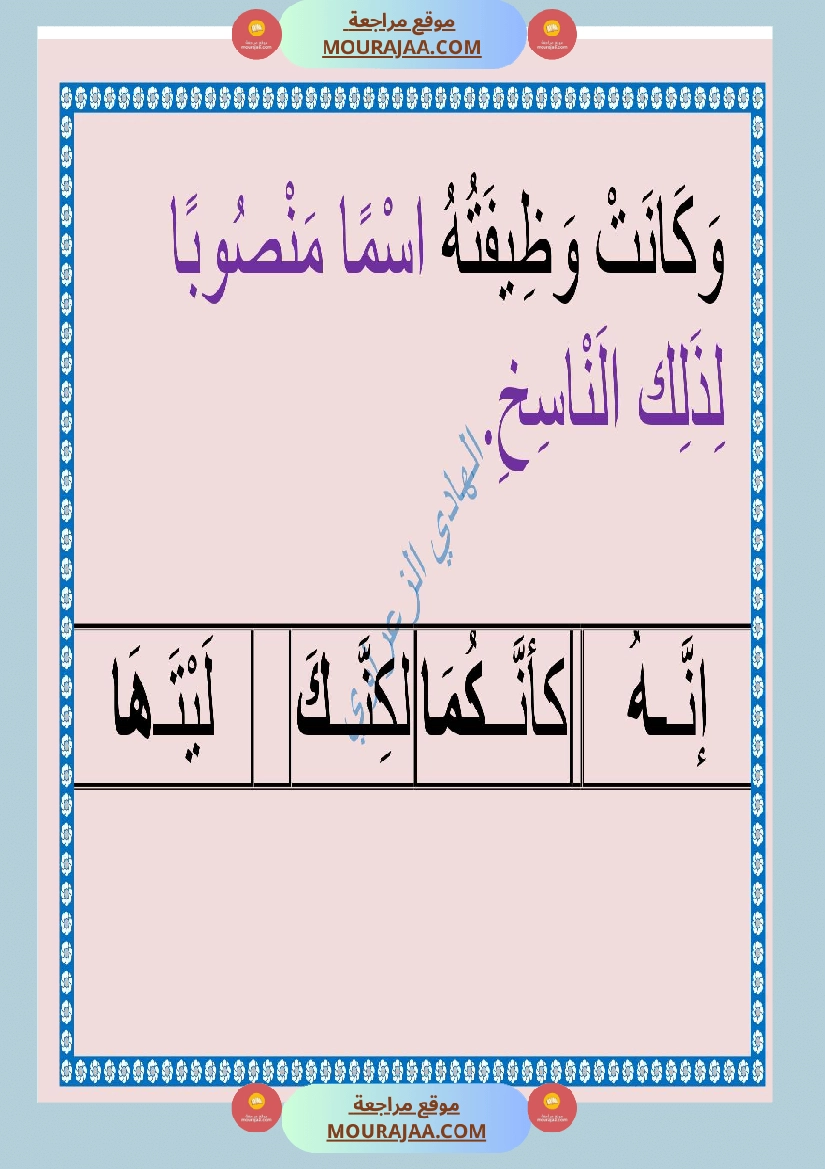 موقع مراجعة
MOURAJAA.COM
وَكَانَتْ وَظِيفَتُهُ اسْمًا مَنْصُوبًا
لِذَلِك الَنْاسِخِ.
الهادي الزعراوي
إنَّــهُ كأنَّــكُمَا لكِنَّــكَ لَيْتَــهَا
موقع مراجعة
MOURAJAA.COM